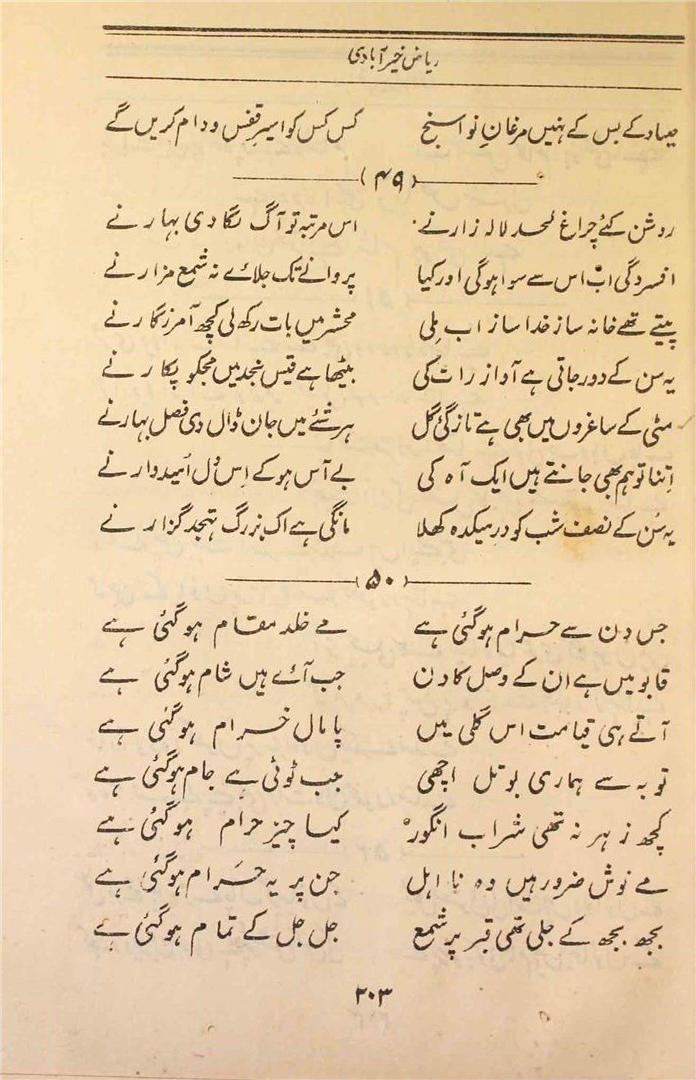 ریاض خیرآبادی
صیاد کے بس کے ہنیں مرغانِ نوا سنج کس کس کو اسیرِ قفس و دام کریں گے
(۴۹)
روشن کئے چراغِ لحد لالہ زار نے اس مرتبہ تو آگ لگا دی بہار نے
افسردگی اب اس سے سوا ہوگی اور کیا پروانے تک جلائے نہ شمع مزار نے
پیتے تھے خانہ ساز خدا ساز اب ملی محشر میں بات رکھ لی کچھ آمرزگار نے
یہ سن کے دور جاتی ہے آواز رات کی بیٹھا ہے قیس نجد میں مجکو پکارنے
مٹی کے ساغروں میں بھی ہے تازگیٔ گل ہر شئے میں جان ڈال دی فصل بہار نے
اِتنا تو ہم بھی جانتے ہیں ایک آہ کی بے آس ہو کے اِس دل اُمیدوار نے
یہ سُن کے نصف شب کو درِ میکدہ کھلا مانگی ہے اک بزرگ تہجد گزار نے
(۵۰)
جس دن سے حرام ہوگئی ہے مے خلد مقام ہوگئی ہے
قابو میں ہے ان کے وصل کا دن جب آئے ہیں شام ہوگئی ہے
آتے ہی قیامت اس گلی میں پامال خرام ہوگئی ہے
توبہ سے ہماری بوتل اچھی جب ٹوٹی ہے جام ہوگئی ہے
کچھ زہر نہ تھی شراب انگور کیا چیز حرام ہوگئی ہے
مے نوش ضرور ہیں وہ نا اہل جن پر یہ حَرام ہوگئی ہے
بجھ بجھ کے جلی تھی قبر پر شمع جل جل کے تمام ہوگئی ہے
۲۰۳